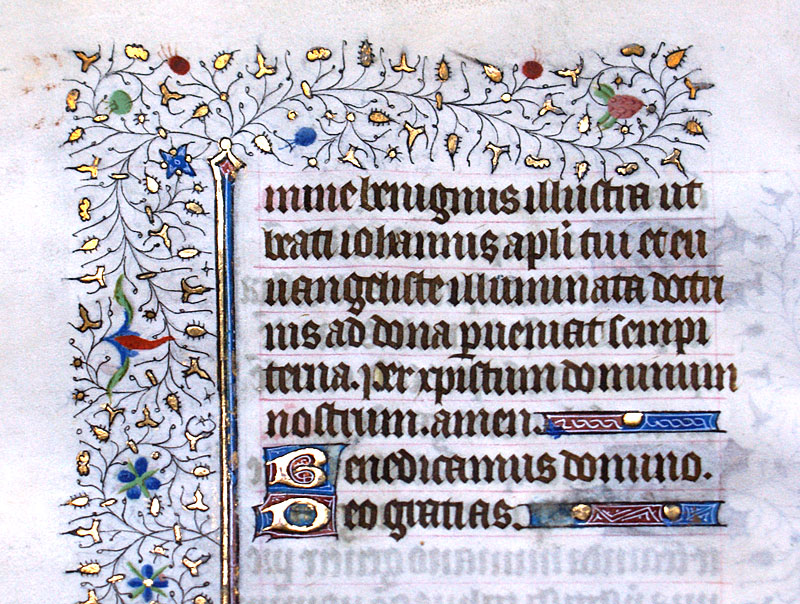 mine benignus illustra ut
beati iohannis apl̄i tui et eu
uangeliste illuminata doctri
nis ad dona ꝑueniat sempi
terna. per xp̄istum dominum
nostrum. amen.
Benedicamus domino.
Deo gratias.